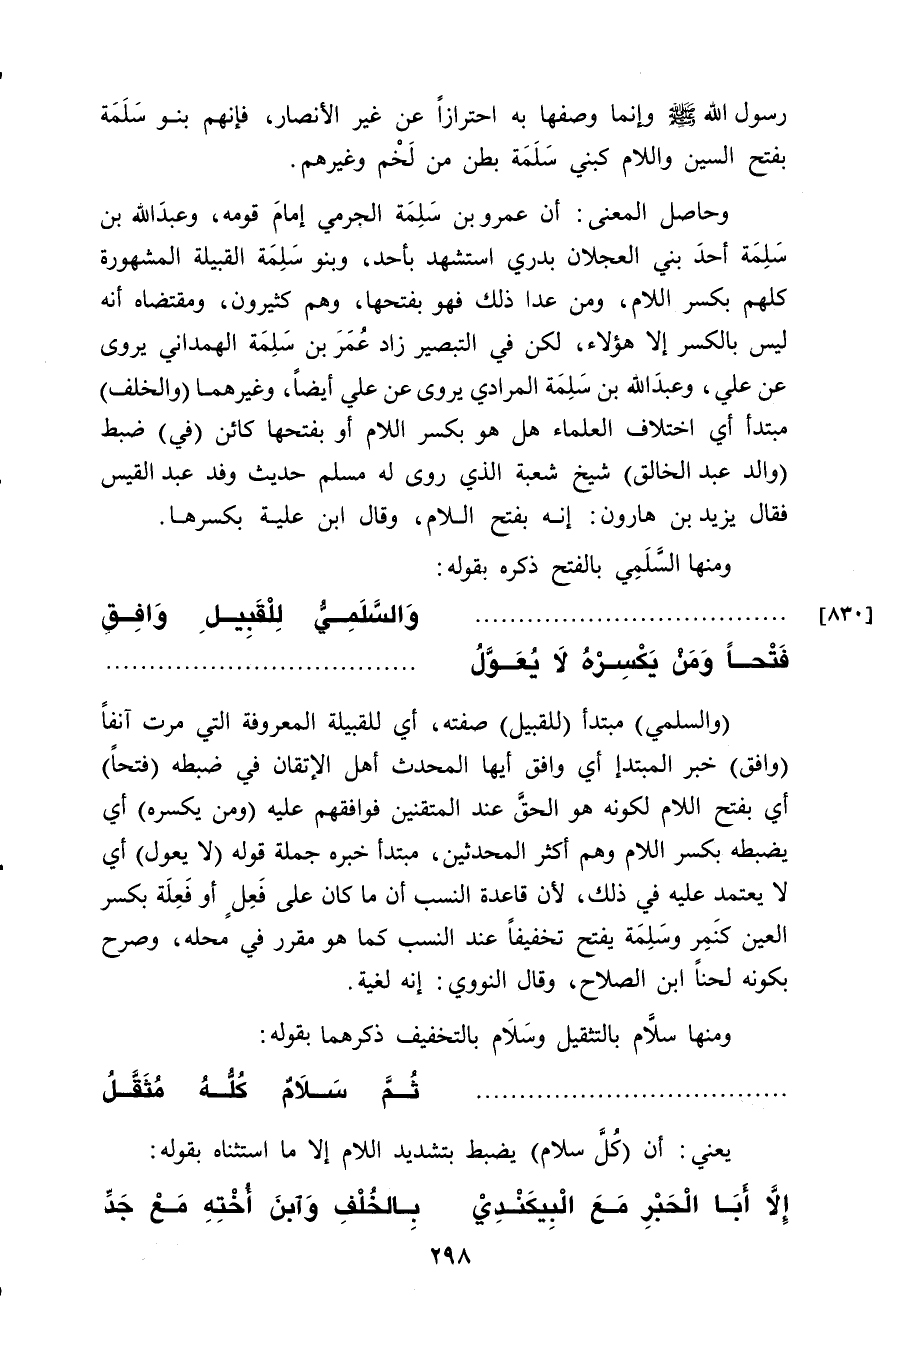 رسول الله ﷺ وإنما وصفها به احترازاً عن غير الأنصار، فإنهم بنو سَلَمَة
بفتح السين واللام كبني سَلَمَة بطن من لَخْم وغيرهم.
وحاصل المعنى: أن عمرو بن سَلِمَة الجرمي إمامَ قومه، وعبدَالله بن
سَلِمَة أحدَ بني العجلان بدري استشهد بأحد، وبنو سَلِمَة القبيلة المشهورة
كلهم بكسر اللام، ومن عدا ذلك فهو بفتحها، وهم كثيرون، ومقتضاه أنه
ليس بالكسر إلا هؤلاء، لكن في التبصير زاد عُمَرَ بن سَلِمَة الهمداني يروى
عن علي، وعبدَالله بن سَلِمَة المرادي يروى عن علي أيضاً، وغيرهما (والخلف)
مبتدأ أي اختلاف العلماء هل هو بكسر اللام أو بفتحها كائن (في) ضبط
(والد عبد الخالق) شيخ شعبة الذي روى له مسلم حديث وفد عبد القيس
فقال يزيد بن هارون: إنه بفتح اللام، وقال ابن علية بكسرها.
ومنها السَّلَمِي بالفتح ذكره بقوله:
[٨٣٠] .................................. وَالسَّلَمِيُّ لِلْقَبِيلِ وَافِقِ
فَتْحاً وَمَنْ يَكْسِرْهُ لَا يُعَوَّلُ ..................................
(والسلمي) مبتدأ (للقبيل) صفته، أي للقبيلة المعروفة التي مرت آنفاً
(وافق) خبر المبتدإ أي وافق أيها المحدث أهل الإتقان في ضبطه (فتحاً)
أي بفتح اللام لكونه هو الحقَّ عند المتقنين فوافقهم عليه (ومن يكسره) أي
يضبطه بكسر اللام وهم أكثر المحدثين، مبتدأ خبره جملة قوله (لا يعول) أي
لا يعتمد عليه في ذلك، لأن قاعدة النسب أن ما كان على فَعِلٍ أو فَعِلَة بكسر
العين كنَمِر وسَلِمَة يفتح تخفيفاً عند النسب كما هو مقرر في محله، وصرح
بكونه لحناً ابن الصلاح، وقال النووي: إنه لغية.
ومنها سلَّام بالتثقيل وسَلَام بالتخفيف ذكرهما بقوله:
.................................. ثُمَّ سَلَامٌ كُلُّهُ مُثَقَّلُ
يعني: أن (كُلَّ سلام) يضبط بتشديد اللام إلا ما استثناه بقوله:
إِلَّا أَبَا الْحَبْرِ مَعَ الْبِيكَنْدِيْ بِالْخُلْفِ وَآبنَ أُخْتِهِ مَعْ جَدِّ
٢٩٨